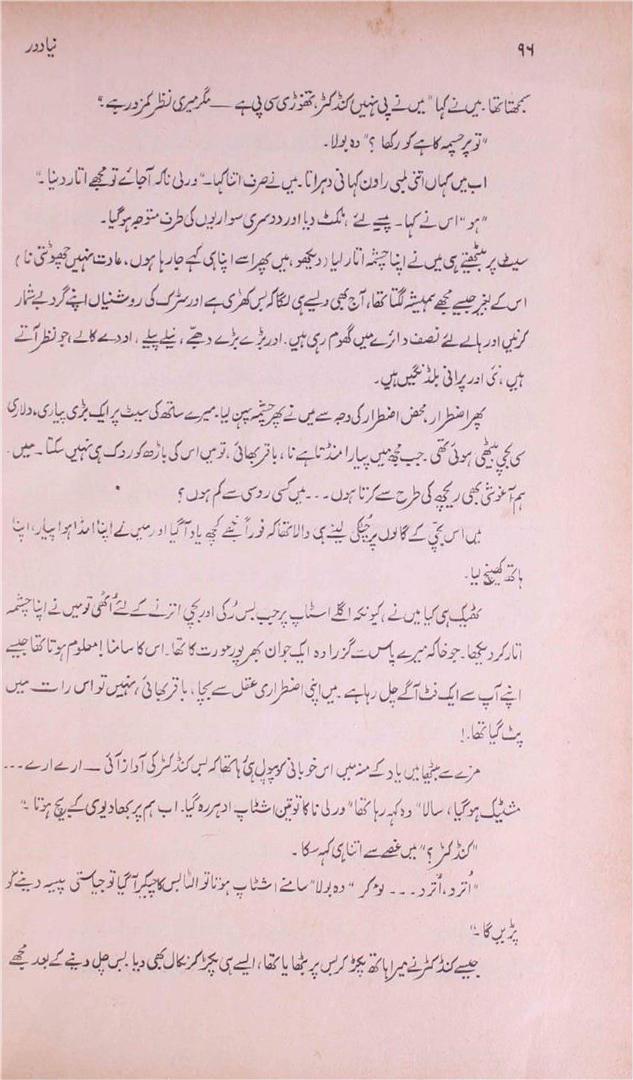 ۹۶
نیا دور
سمجھتا تھا۔ میں نے کہا "میں نے پی نہیں کنڈکٹر، تھوڑی سی پی ہے — مگر میری نظر کمزور ہے۔"
"تو پر چسمہ کاہے کو رکھا ؟" وہ بولا۔
اب میں کہاں اتنی لمبی راون کہانی دہراتا۔ میں نے صرف اتنا کہا۔ "ورلی ناکہ آجائے تو مجھے اتار دینا۔"
"ہو" اس نے کہا۔ پیسے لئے، ٹکٹ دیا اور دوسری سواریوں کی طرف متوجہ ہوگیا۔
سیٹ پر بیٹھتے ہی میں نے اپنا چشمہ اتار لیا (دیکھو، میں پھر اسے اپنا ہی کہے جا رہا ہوں، عادت نہیں چھوٹتی نا)
اس کے بغیر جیسے مجھے ہمیشہ لگتا تھا، آج بھی ویسے ہی لگا کہ بس کھڑی ہے اور سڑک کی روشنیاں اپنے گرد بے شمار
کرنیں اور ہالے لئے نصف دائرے میں گھوم رہی ہیں۔ اور بڑے بڑے دھبّے، نیلے پیلے، اودے کالے، جو نظر آتے
ہیں، نئی اور پرانی بلڈنگیں ہیں۔
پھر اضطرار، محض اضطرار کی وجہ سے میں نے پھر چشمہ پہن لیا۔ میرے ساتھ کی سیٹ پر ایک بڑی پیاری، دلاری
سی بچی بیٹھی ہوئی تھی۔ جب مجھ میں پیار امنڈتا ہے نا، باقر بھائی، تو میں اس کی باڑھ کو روک ہی نہیں سکتا۔ میں
ہم آغوشی بھی ریچھ کی طرح سے کرتا ہوں ... میں کسی روسی سے کم ہوں ؟
میں اس بچی کے گالوں پر چٹکی لینے ہی والا تھا کہ فوراً مجھے کچھ یاد آگیا اور میں نے اپنا امڈا ہوا پیار، اپنا
ہاتھ کھینچ لیا۔
ٹھیک ہی کیا میں نے، کیونکہ اگلے اسٹاپ پر جب بس رُکی اور بچی اترنے کے لئے اُٹھی تو میں نے اپنا چشمہ
اتار کر دیکھا۔ جو خاکہ میرے پاس سے گزرا وہ ایک جوان بھرپور عورت کا تھا۔ اس کا سامنا! معلوم ہوتا تھا جیسے
اپنے آپ سے ایک فٹ آگے چل رہا ہے۔ میں اپنی اضطراری عقل سے بچا، باقر بھائی، نہیں تو اس رات میں
پٹ گیا تھا۔!
مزے سے بیٹھا میں یاد کے منہ میں اس خوبانی کو پپول ہی رہا تھا کہ بس کنڈکٹر کی آواز آئی — ارے ارے ...
مشٹیک ہوگیا، سالا" وہ کہہ رہا تھا "ورلی ناکا تو تین اسٹاپ ادھر رہ گیا۔ اب ہم پربھا دیوی کے بیچ ہوتا۔"
"کنڈکٹر ؟" میں غصے سے اتنا ہی کہہ سکا۔
"اُترو، اُترو ... نو مکر" وہ بولا "سامنے اسٹاپ ہوتا تو الٹا بس کا چیکر آگیا تو جیاستی پیسہ دینے کو
پڑیں گا۔"
جیسے کنڈکٹر نے میرا ہاتھ پکڑ کر بس پر بٹھایا تھا، ایسے ہی پکڑ کر نکال بھی دیا۔ بس چل دینے کے بعد مجھے